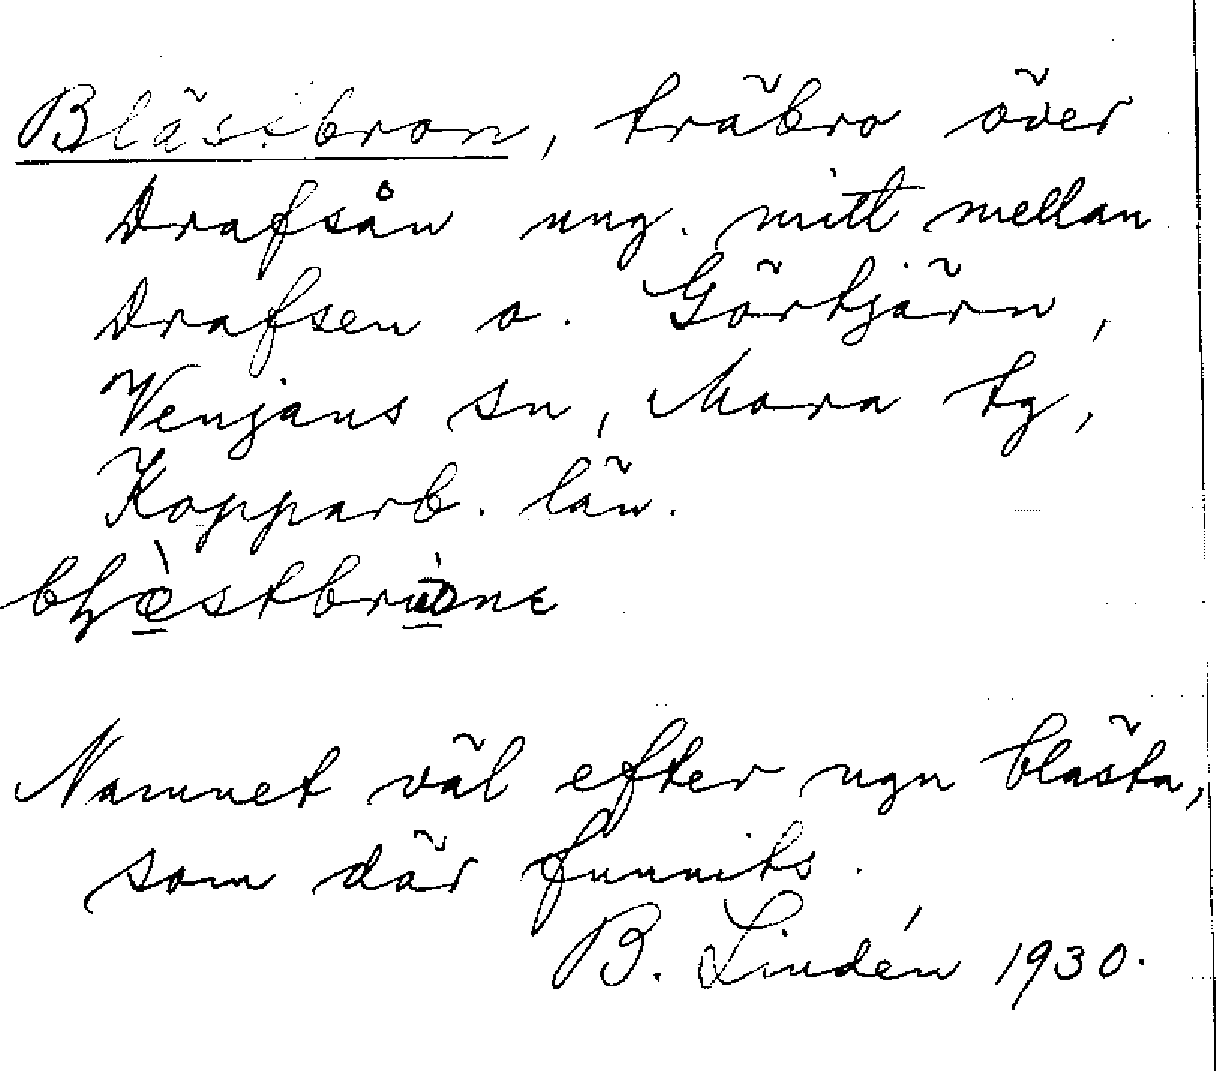 Blästbron, träbro över
Drafsån ung. mitt mellan
Drafsen o. Görtjärn,
Venjans sn, Mora tg,
Kopparb. län.
Namnet väl efter ngn blästa,
som där funnits.
B. Lindén 1930.